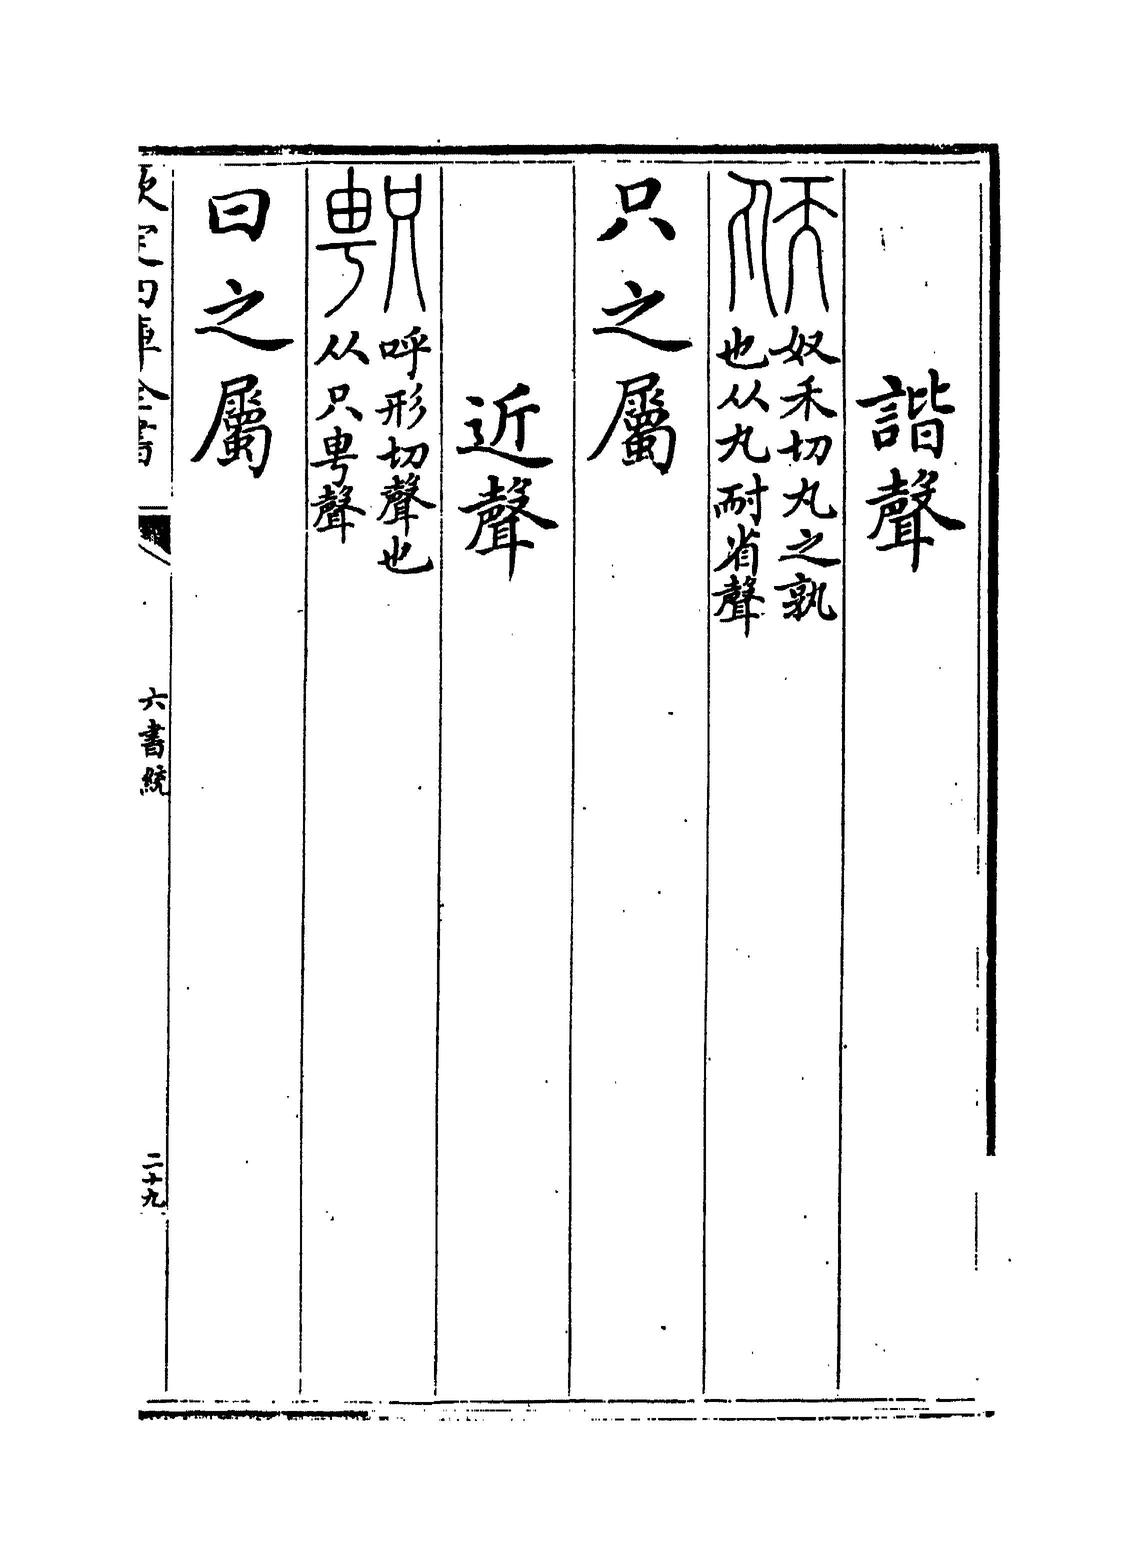 諧聲
奴禾切丸之孰
也从丸耐省聲
只之屬
近聲
呼形切聲也
从只甹聲
曰之屬
欽定四庫全書
六書統
二十九